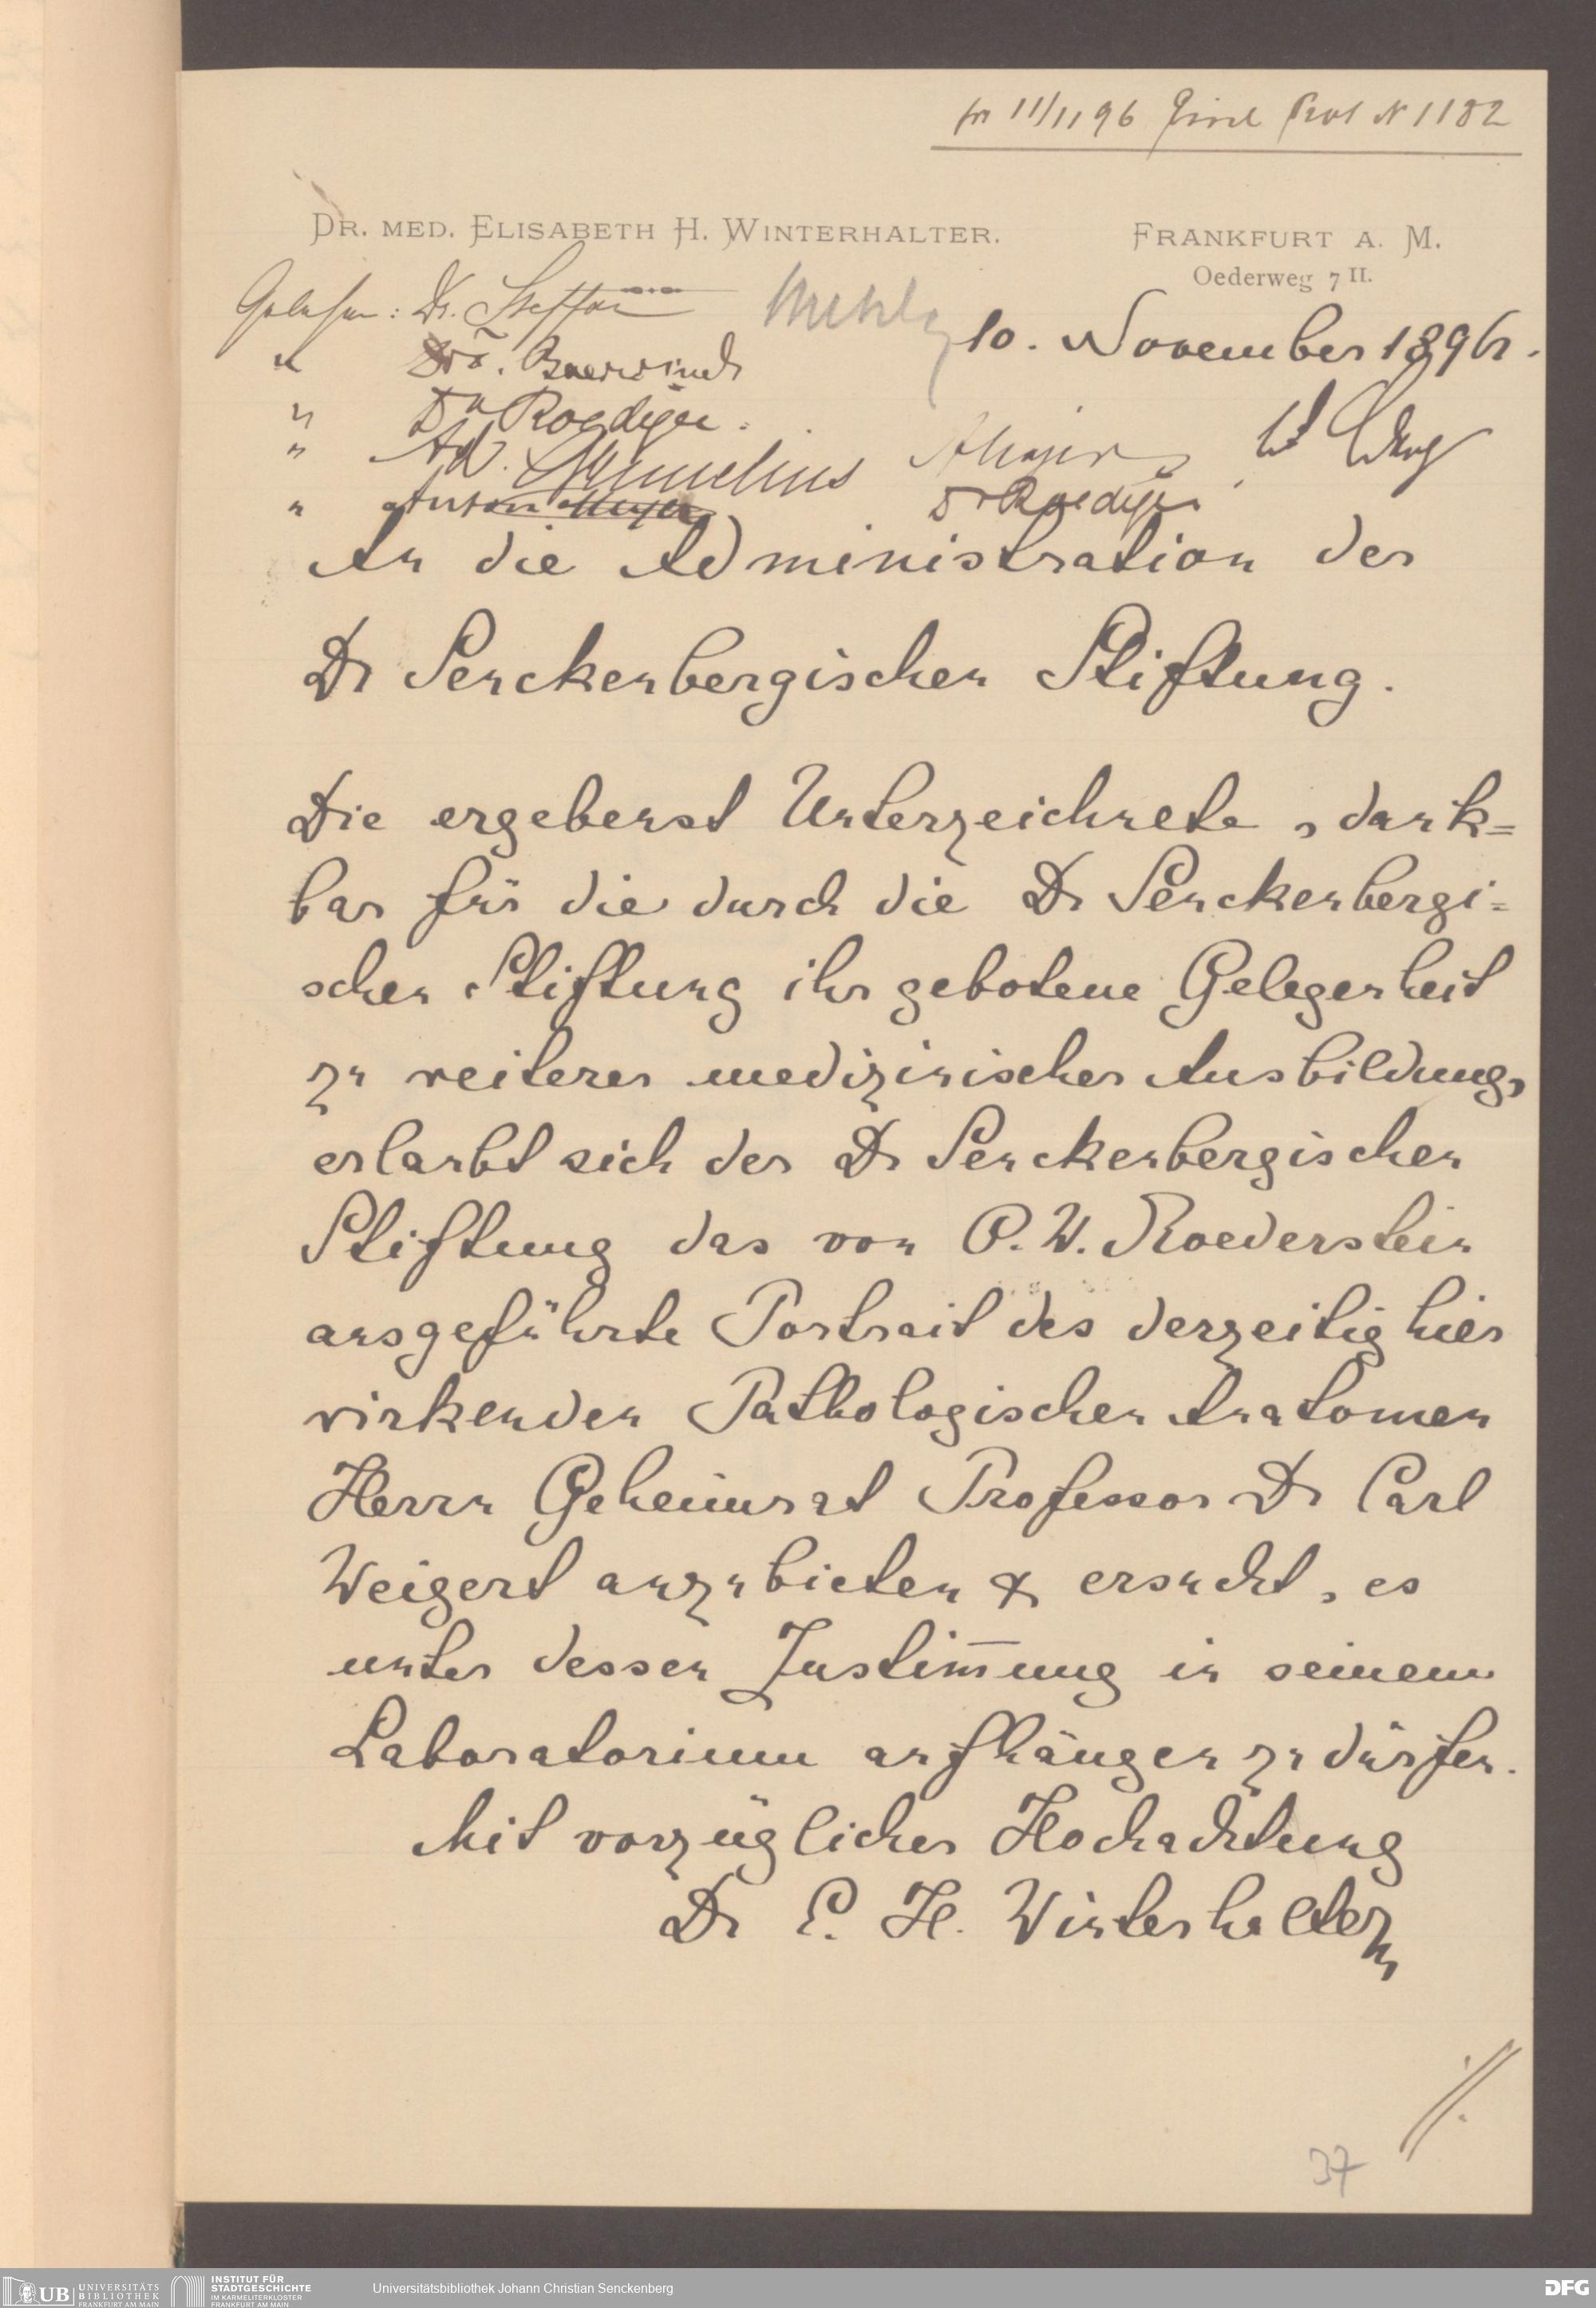 11/11 96 Prot N 1182
DR. MED. ELISABETH H. WINTERHALTER.
FRANKFURT A. M.
Oederweg 7 II.
Gelesen: Dr. Steffan
10. November 1896.
" Dr. Baerwindt
" Dr Roediger.
" Ad. Gymnelius
" Anton Meyer
A Meyer
Dr Roediger
An die Administration der
Dr Senckenbergischen Stiftung.
Die ergebenst Unterzeichnete, dank=
bar für die durch die Dr Senckenbergi=
schen Stiftung ihr gebotene Gelegenheit
zu weiterer medizinischer Ausbildung,
erlaubt sich der Dr Senckenbergischen
Stiftung das von O. W. Roederstein
ausgeführte Portrait des derzeitig hier
wirkenden Pathologischen Anatomen
Herrn Geheimrat Professor Dr Carl
Weigert anzubieten & ersucht, es
unter dessen Zustim̅ung in seinem
Laboratorium aufhängen zu dürfen.
Mit vorzüglicher Hochachtung
Dr E. H. Winterhalter
37
UB UNIVERSITÄTS
BIBLIOTHEK
FRANKFURT AM MAIN
INSTITUT FÜR
STADTGESCHICHTE
IM KARMELITERKLOSTER
FRANKFURT AM MAIN
Universitätsbibliothek Johann Christian Senckenberg
DFG